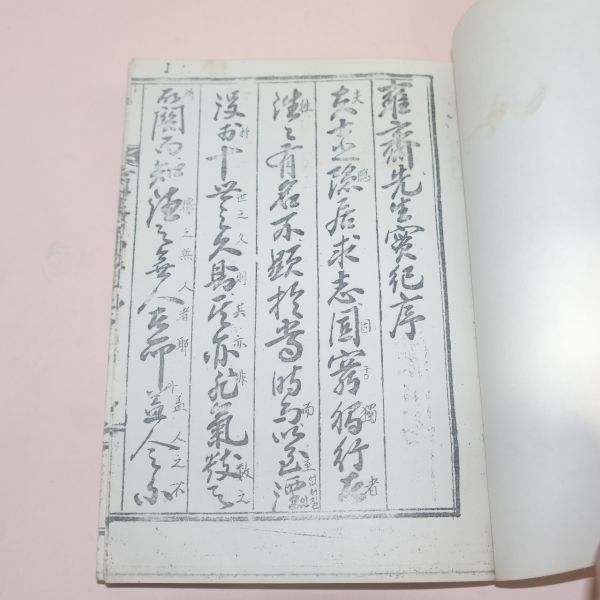 雍齋先生實紀序
夫士之隱居求志固窮獨行者
往往有名不顯於當時而以至湮
沒於十世之久則其亦非氣數之
所關而知德之無人者耶盖人之不